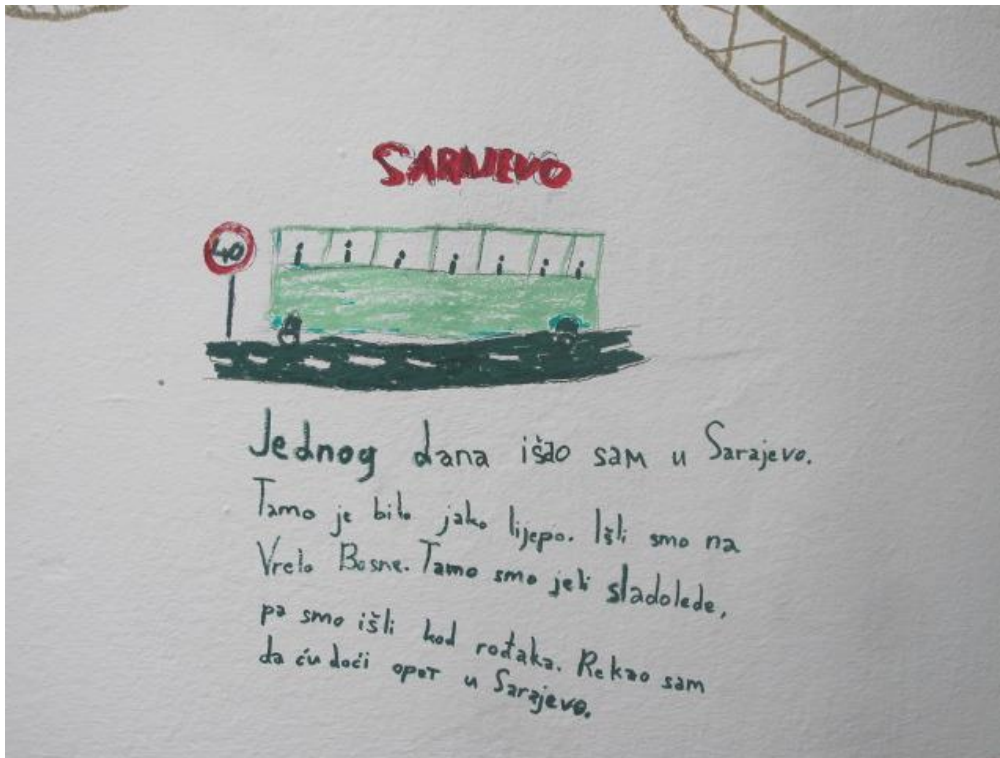 SARAJEVO
40
Jednog dana išao sam u Sarajevo.
Tamo je bilo jako lijepo. Išli smo na
Vrelo Bosne. Tamo smo jeli sladolede,
pa smo išli kod rođaka. Rekao sam
da ću doći opet u Sarajevo.